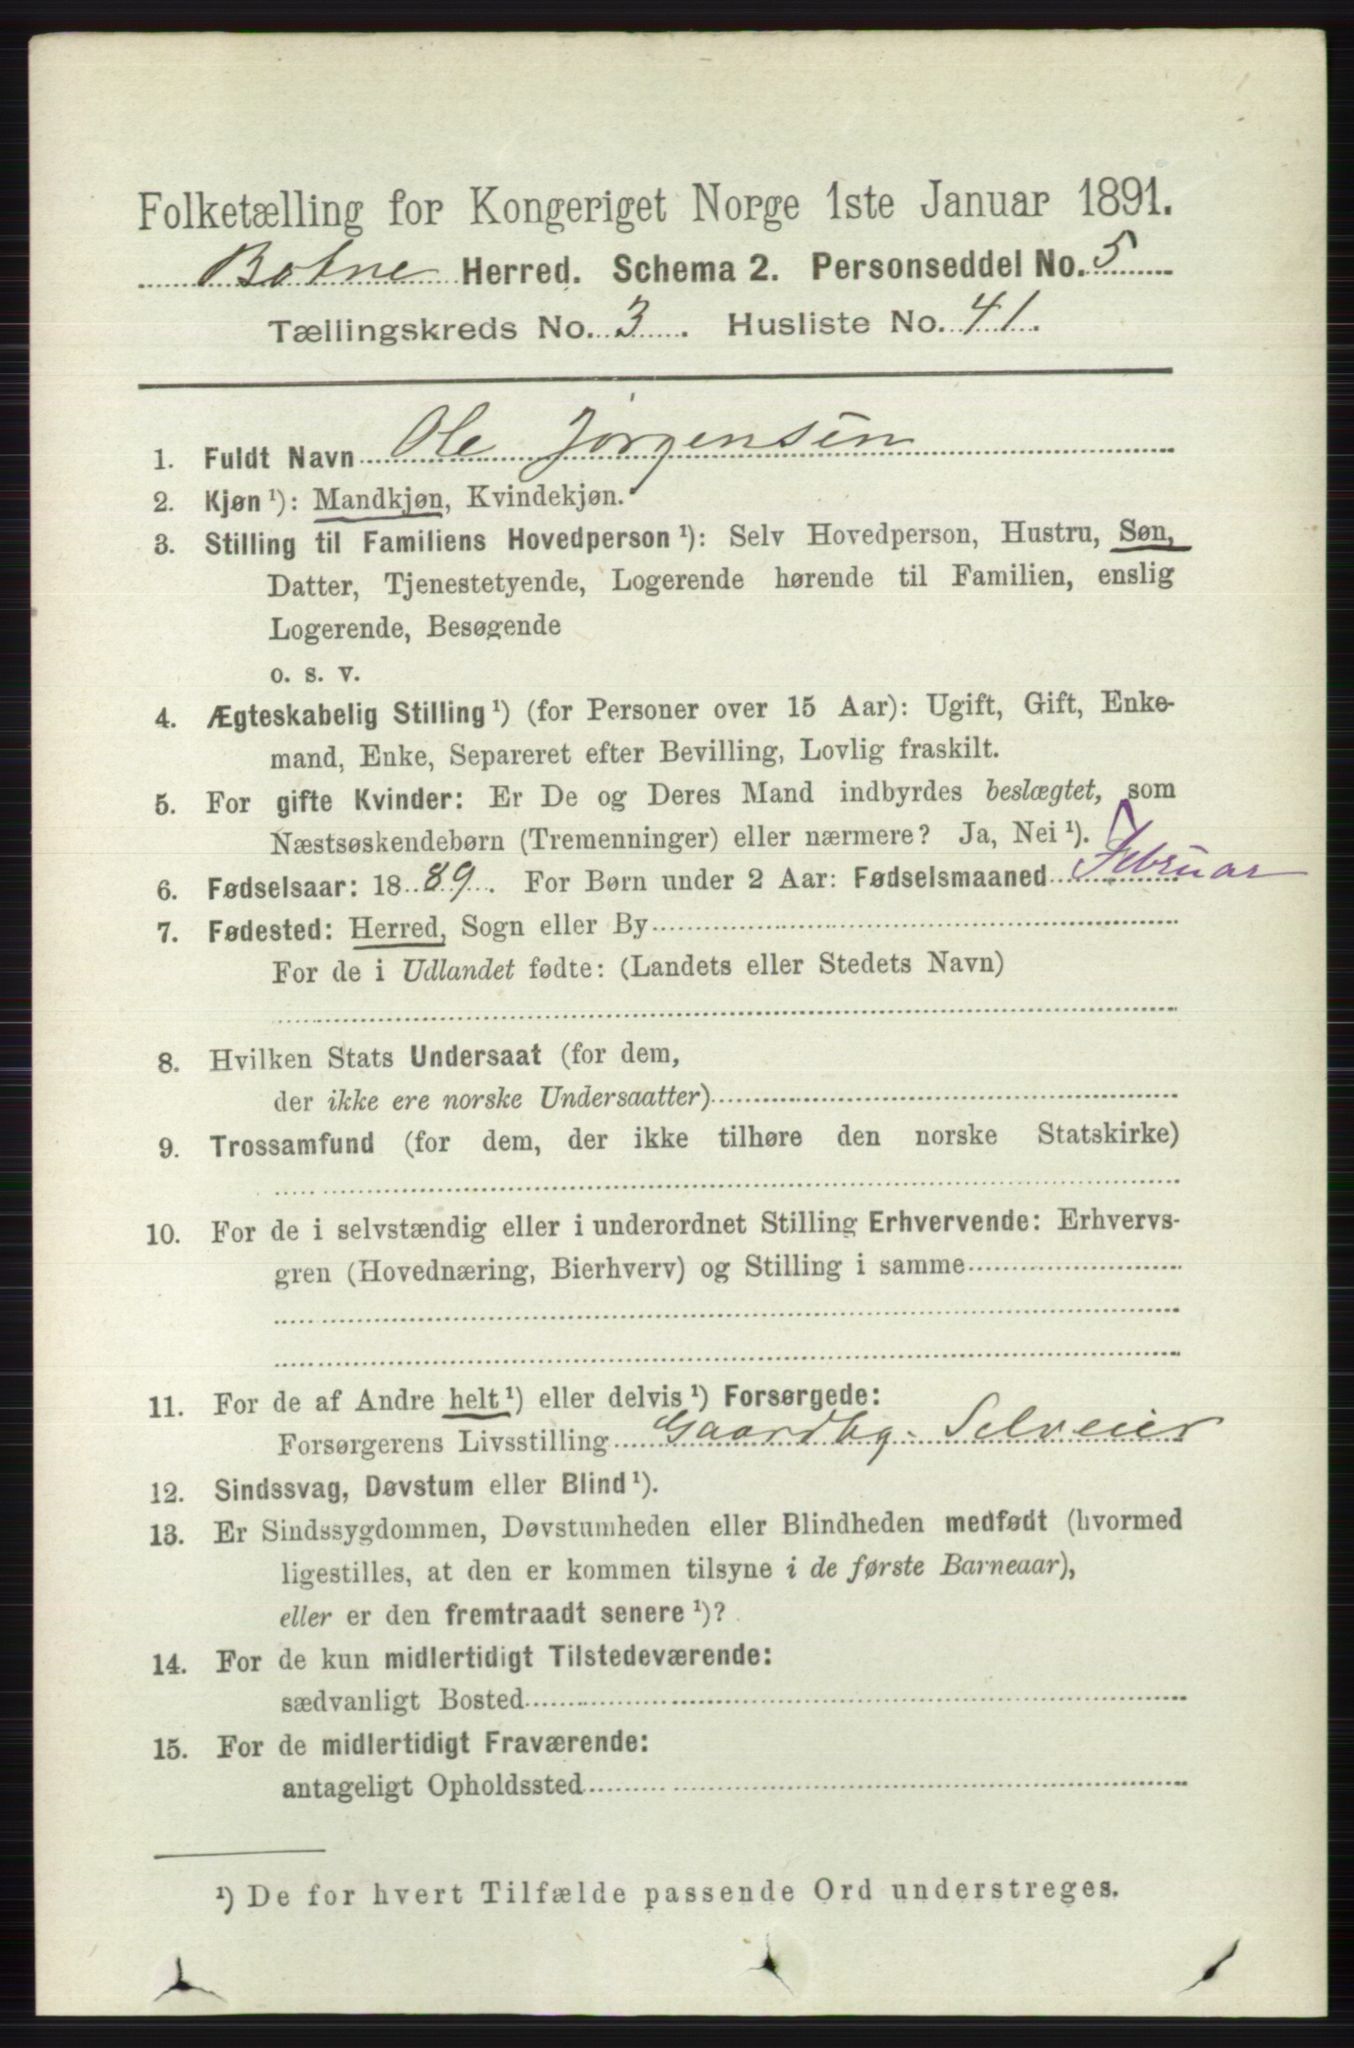 Folketælling for Kongeriget Norge 1ste Januar 1891.
Botne Herred. Schema 2. Personseddel No. 5
Tællingskreds No. 3. Husliste No. 41.
1. Fuldt Navn Ole Jørgensen
2. Kjøn ¹): Mandkjøn, Kvindekjøn.
3. Stilling til Familiens Hovedperson ¹): Selv Hovedperson, Hustru, Søn,
Datter, Tjenestetyende, Logerende hørende til Familien, enslig
Logerende, Besøgende
o. s. v.
4. Ægteskabelig Stilling ¹) (for Personer over 15 Aar): Ugift, Gift, Enke-
mand, Enke, Separeret efter Bevilling, Lovlig fraskilt.
5. For gifte Kvinder: Er De og Deres Mand indbyrdes beslægtet, som
Næstsøskendebørn (Tremenninger) eller nærmere? Ja, Nei ¹).
6. Fødselsaar: 1889. For Børn under 2 Aar: Fødselsmaaned Februar
7. Fødested: Herred, Sogn eller By
For de i Udlandet fødte: (Landets eller Stedets Navn)
8. Hvilken Stats Undersaat (for dem,
der ikke ere norske Undersaatter)
9. Trossamfund (for dem, der ikke tilhøre den norske Statskirke)
10. For de i selvstændig eller i underordnet Stilling Erhvervende: Erhvervs-
gren (Hovednæring, Bierhverv) og Stilling i samme
11. For de af Andre helt ¹) eller delvis ¹) Forsørgede:
Forsørgerens Livsstilling Gaardbg. Selveier
12. Sindssvag, Døvstum eller Blind ¹).
13. Er Sindssygdommen, Døvstumheden eller Blindheden medfødt (hvormed
ligestilles, at den er kommen tilsyne i de første Barneaar),
eller er den fremtraadt senere ¹)?
14. For de kun midlertidigt Tilstedeværende:
sædvanligt Bosted
15. For de midlertidigt Fraværende:
antageligt Opholdssted
¹) De for hvert Tilfælde passende Ord understreges.